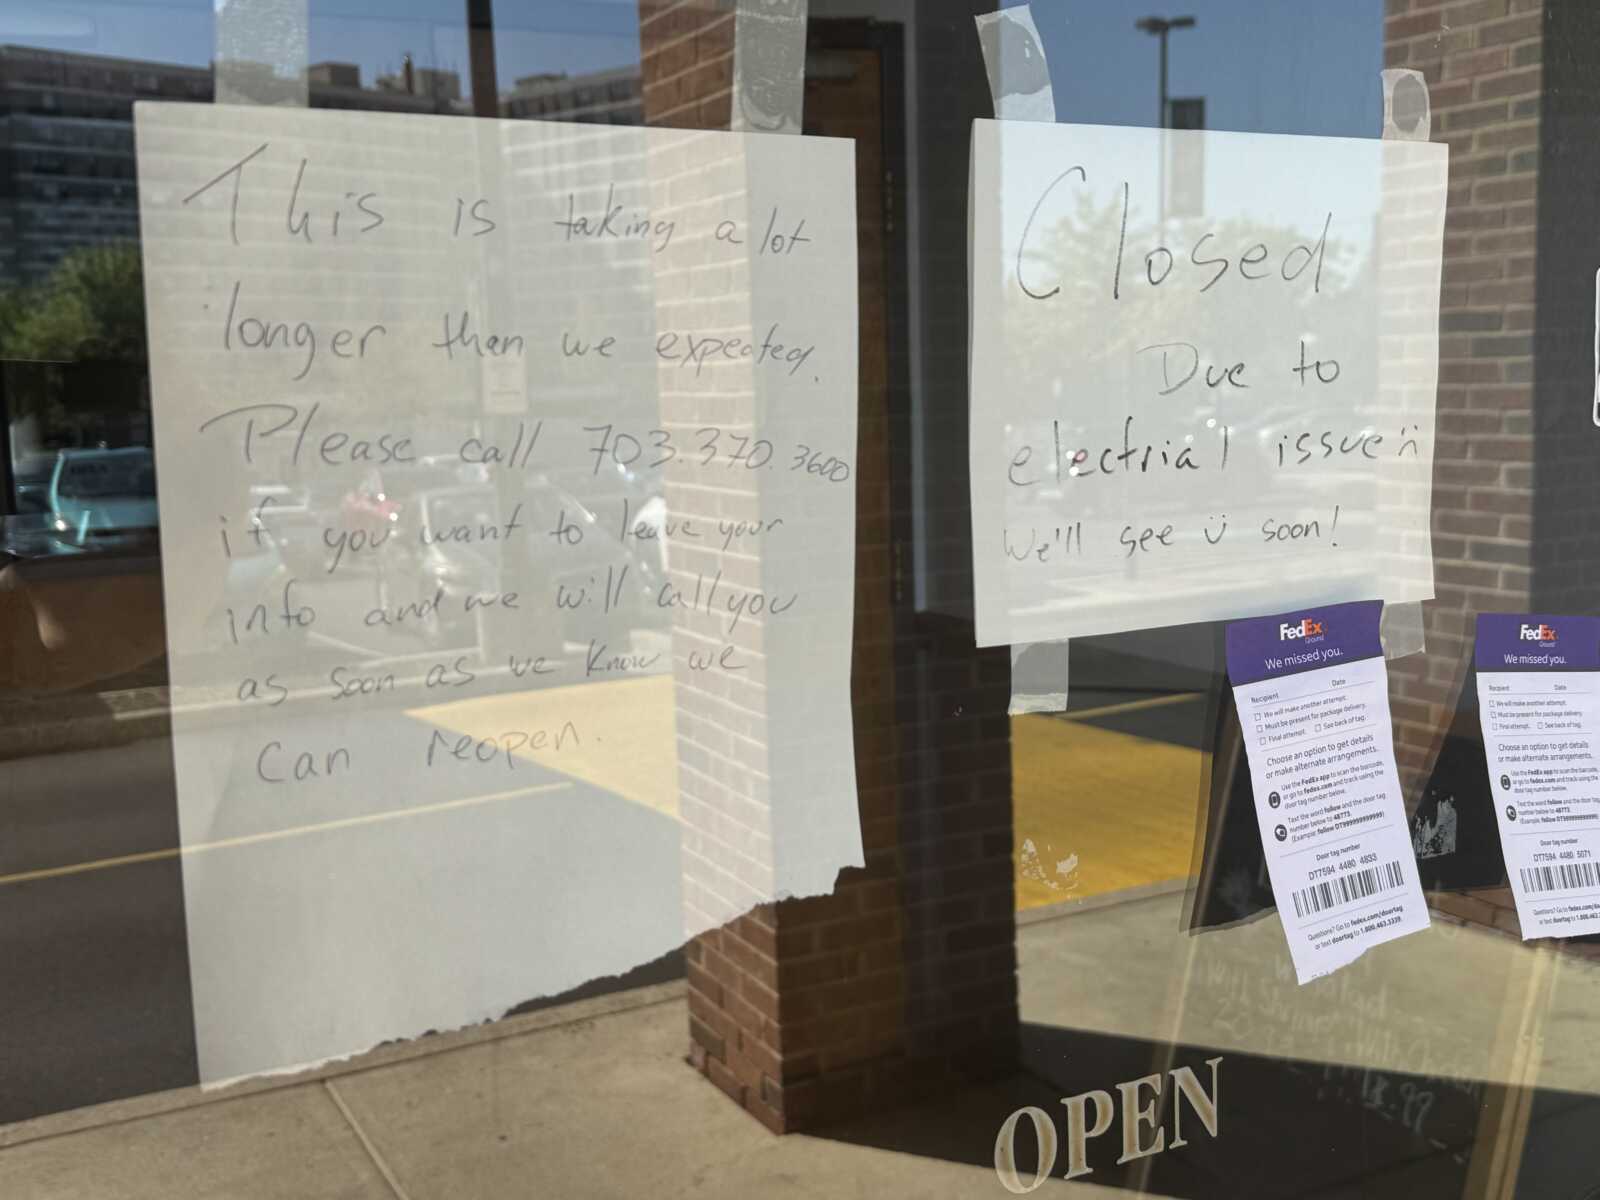 This is taking a lot
longer then we expected.
Please call 703.370.3600
if you want to leave your
info and we will call you
as soon as we know we
can reopen.
Closed
Due to
electrial issue
We'll see ü soon!
FedEx
Ground
We missed you.
Recipient Date
We will make another attempt.
Must be present for package delivery.
Final attempt. See back of tag.
Choose an option to get details
or make alternate arrangements.
Use the FedEx app to scan the barcode,
or go to fedex.com and track using the
door tag number below.
Text the word follow and the door tag
number below to 48773.
(Example: follow DT999999999999)
Door tag number
DT7594 4480 4833
Questions? Go to fedex.com/doortag
or text doortag to 1.800.463.3339.
FedEx
Ground
We missed you.
Recipient Date
We will make another attempt.
Must be present for package delivery.
Final attempt. See back of tag.
Choose an option to get details
or make alternate arrangements.
Use the FedEx app to scan the barcode,
or go to fedex.com and track using the
door tag number below.
Text the word follow and the door tag
number below to 48773.
(Example: follow DT999999999999)
Door tag number
DT7594 4480 5071
Questions? Go to fedex.com/
or text doortag to 1.800.463.
OPEN